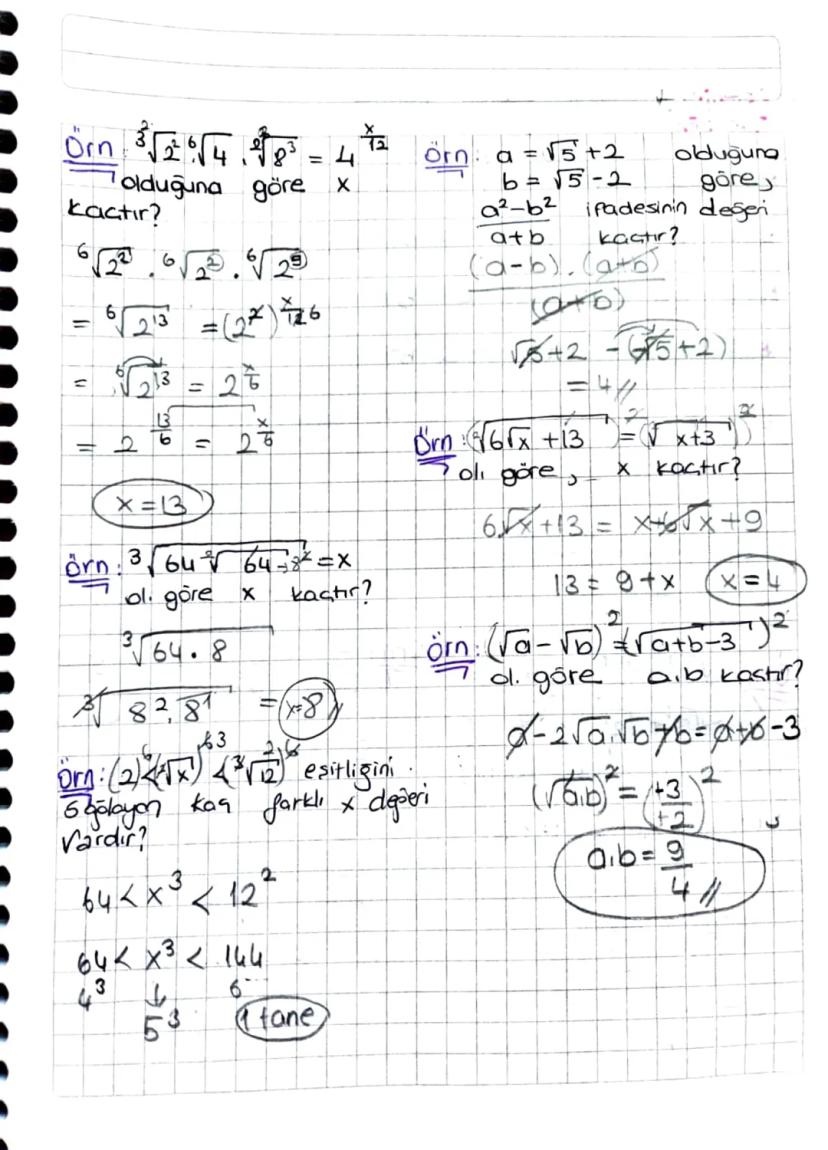 Örn: ³√2² ⁶√4 · ²√8³ = 4^(x/12)
olduğuna göre x
kaçtır?
⁶√2² · ⁶√2² · ⁶√2⁹
= ⁶√2¹³ = (2²)^(x/12) 6
= ⁶√2¹³ = 2^(x/6)
= 2^(13/6) = 2^(x/6)
x=13
Örn: ³√(64 ²√(64 = 8²)) = x
ol. göre x kaçtır?
³√(64 · 8)
³√(8² · 8¹) = x=8
Örn: (2)⁶ < (√x)⁶ ³ < (³√12)⁶ ² eşitliğini
sağlayan kaç farklı x değeri
vardır?
64 < x³ < 12²
64 < x³ < 144
4³ ↓ 6
5³ 1 tane
Örn: a = √5 +2 olduğuna
b = √5 -2 göre,
a²-b² ifadesinin değeri
a+b kaçtır?
(a-b) . (a+b)
(a+b)
√5+2 -(√5+2)
= 4 //
Örn: (²√(6√x +13))² = (√x+3)²
ol. göre, x kaçtır?
6√x +13 = x+6√x+9
13 = 9+x x=4
Örn: (√a - √b)² = (√(a+b-3))²
ol. göre a.b kaçtır?
a-2√a.√b+b = a+b-3
(√a.b)² = (+3/+2)²
a.b = 9/4 //